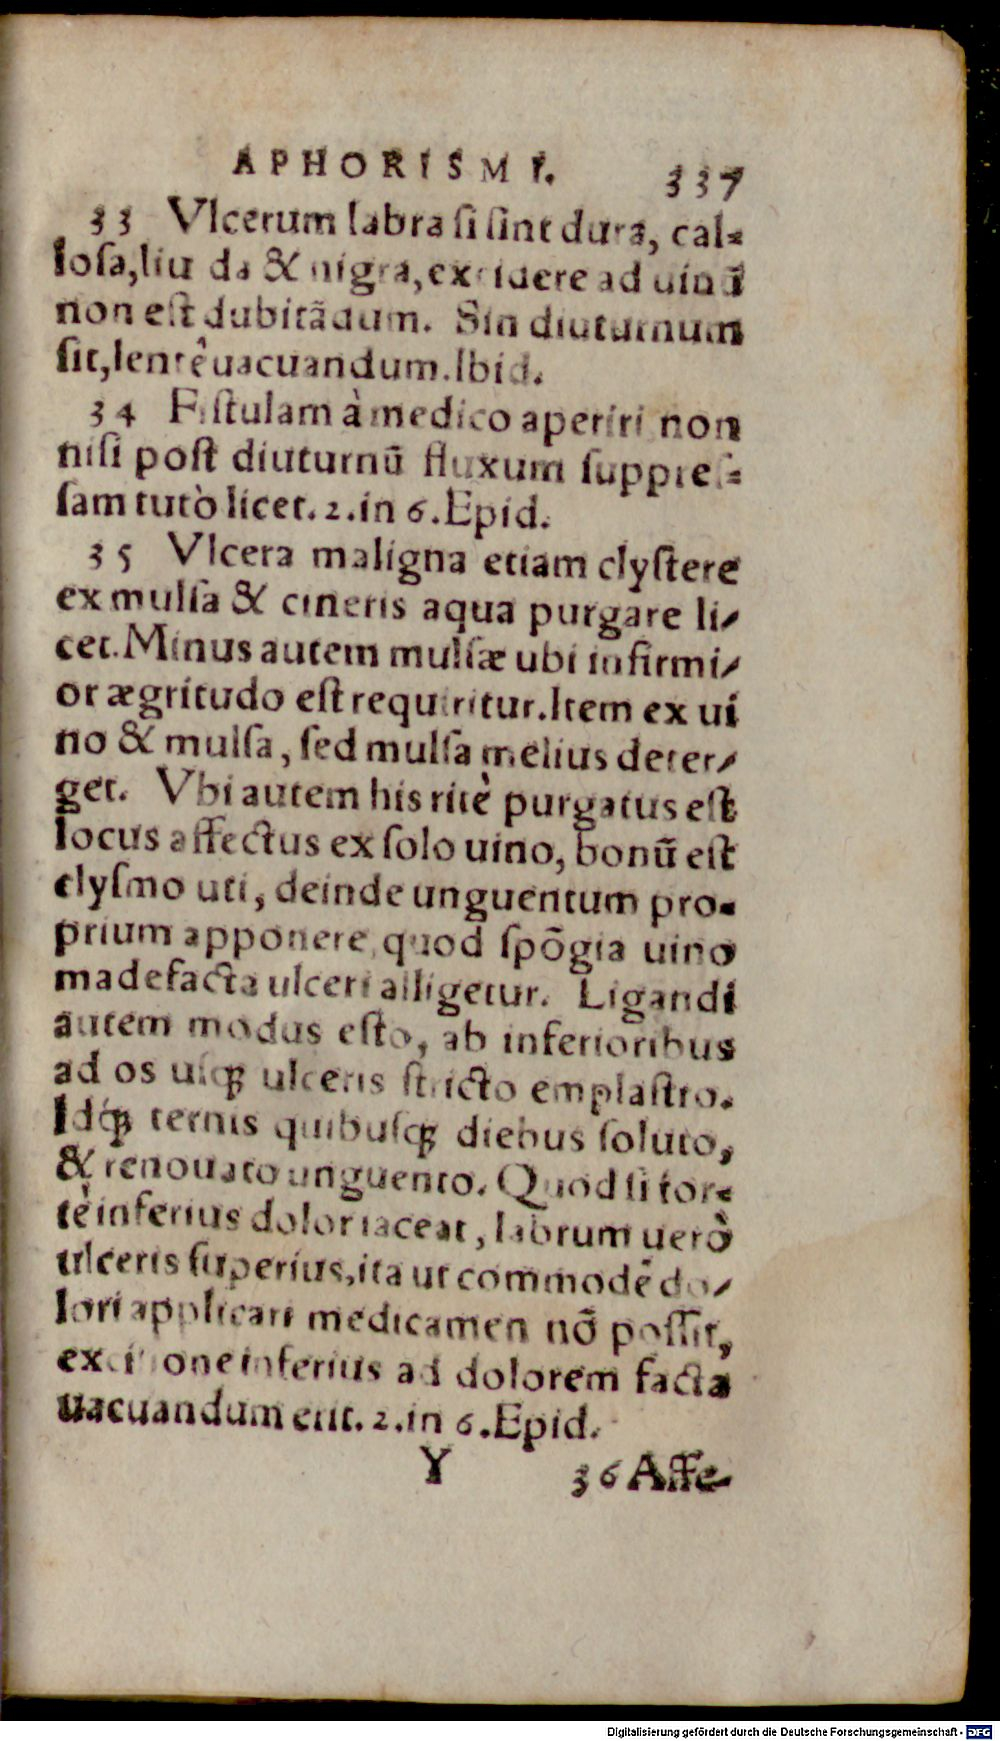 APHORISMI. 337
33 Vlcerum labra ſi ſint dura, cal-
loſa, liuida & nigra, excidere ad uiuũ
non eſt dubitãdum. Sin diuturnum
ſit, lentê uacuandum. Ibid.
34 Fiſtulam à medico aperiri non
niſi poſt diuturnũ fluxum suppreſ-
ſam tutò licet. 2. in 6. Epid.
35 Vlcera maligna etiam clyſtere
ex mulſa & cineris aqua purgare li-
cet. Minus autem mulſæ ubi infirmi-
or ægritudo eſt requiritur. Item ex ui
no & mulſa, ſed mulſa melius deter-
get. Vbi autem his ritè purgatus eſt
locus affectus ex ſolo uino, bonũ eſt
clyſmo uti, deinde unguentum pro-
prium apponere, quod ſpõgia uino
madefacta ulceri alligetur. Ligandi
autem modus eſto, ab inferioribus
ad os uſqꝫ ulceris ſtricto emplaſtro.
Idqꝫ ternis quibuſqꝫ diebus ſoluto,
& renouato unguento. Quod ſi for-
tè inferius dolor iaceat, labrum uerò
ulceris ſuperius, ita ut commodê do-
lori applicari medicamen nõ poſſit,
exciſione inferius ad dolorem facta
uacuandum erit. 2. in 6. Epid.
Y 36 Affe-
Digitalisierung gefördert durch die Deutsche Forschungsgemeinschaft - DFG